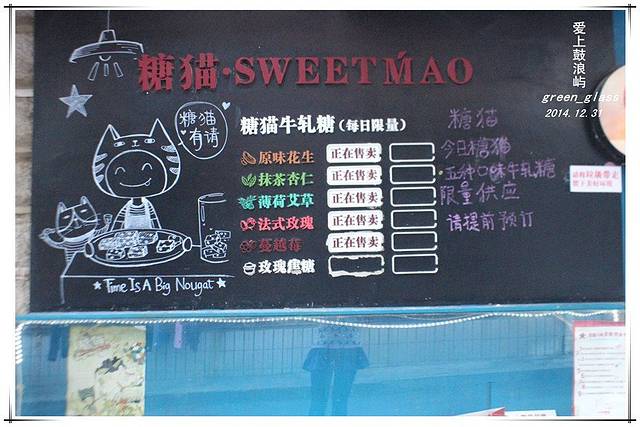 爱上鼓浪屿
green_glass
2014.12.31
糖猫·SWEETMAO
糖猫
有请
糖猫牛轧糖（每日限量）
原味花生 正在售卖
抹茶杏仁 正在售卖
薄荷艾草 正在售卖
法式玫瑰 正在售卖
蔓越莓 正在售卖
玫瑰焦糖
糖猫
今日糖猫
五种口味牛轧糖
限量供应
请提前预订
Time Is A Big Nougat